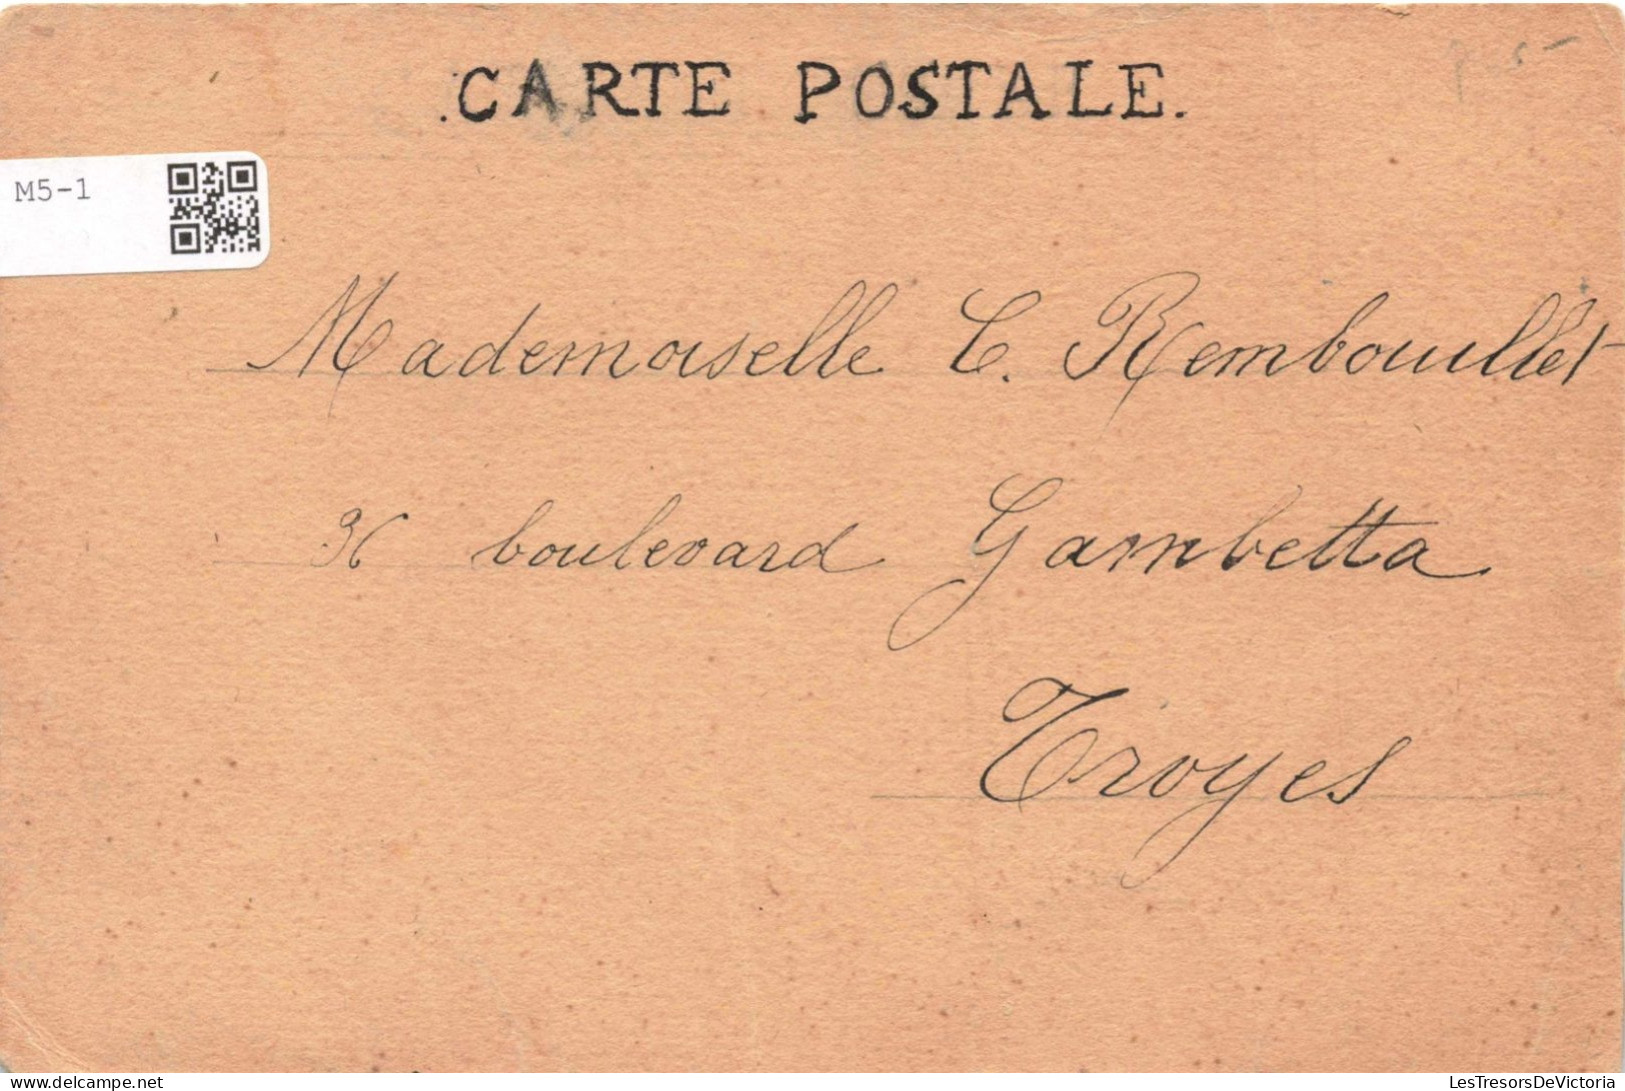 .CARTE POSTALE.
M5-1
Mademoiselle C. Rembouillet
36 boulevard Gambetta
Troyes
LesTresorsDeVictoria